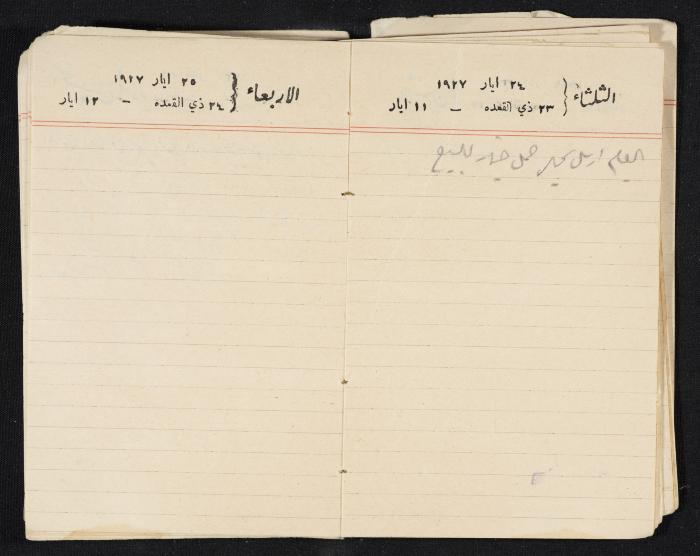 الثلثاء
٢٤ ايار ١٩٢٧
٢٣ ذي القعده – ١١ ايار
اليوم ارسل حمل خيار للبيع
الاربعاء
٢٥ ايار ١٩٢٧
٢٤ ذي القعده – ١٢ ايار